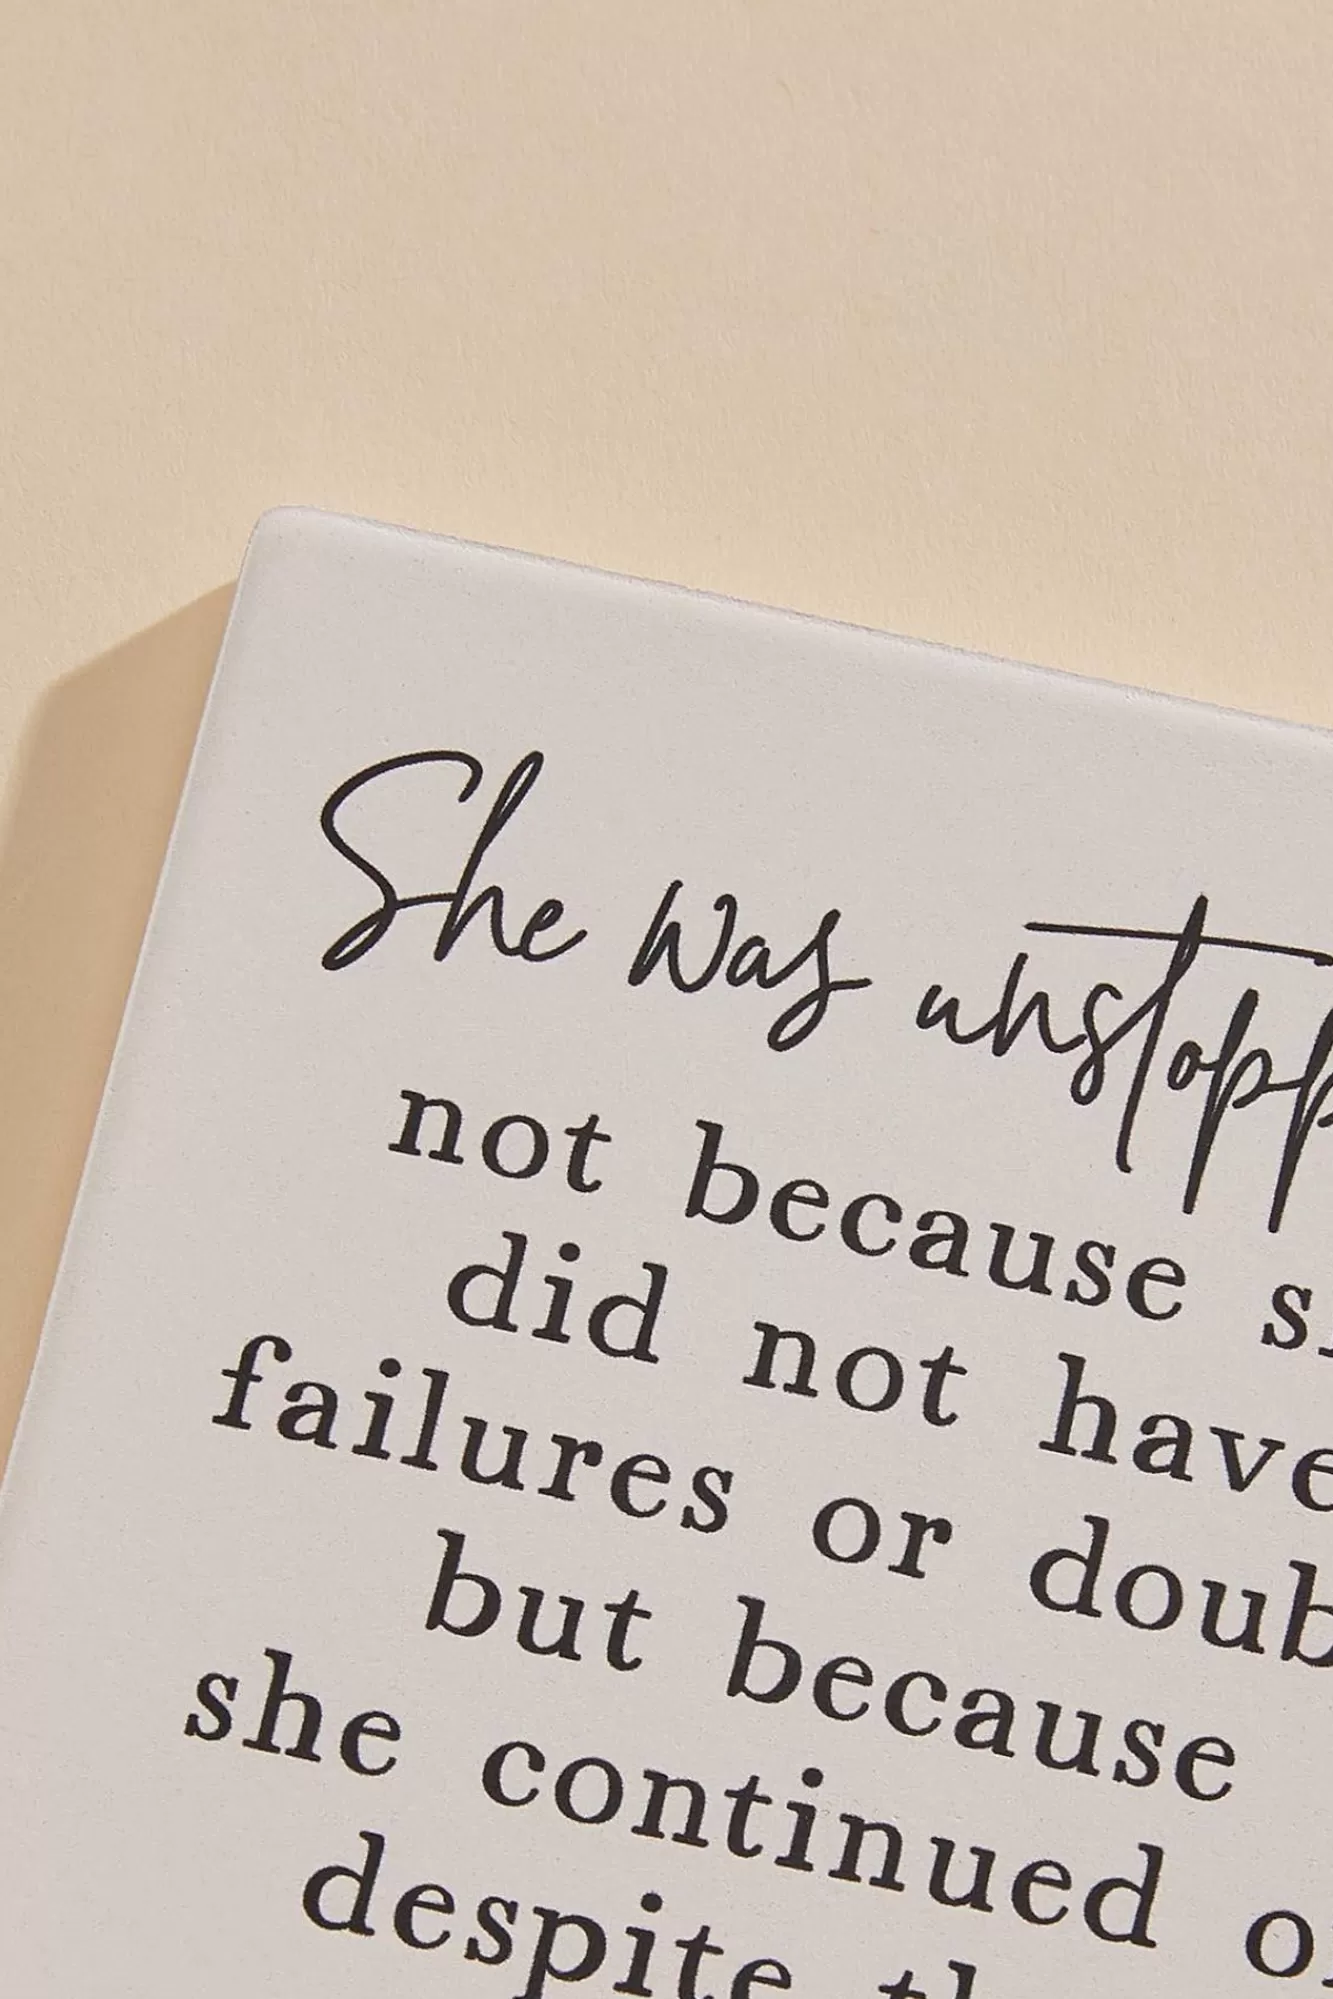 She was unstopp
not because s
did not have
failures or doub
but because
she continued o
despite th